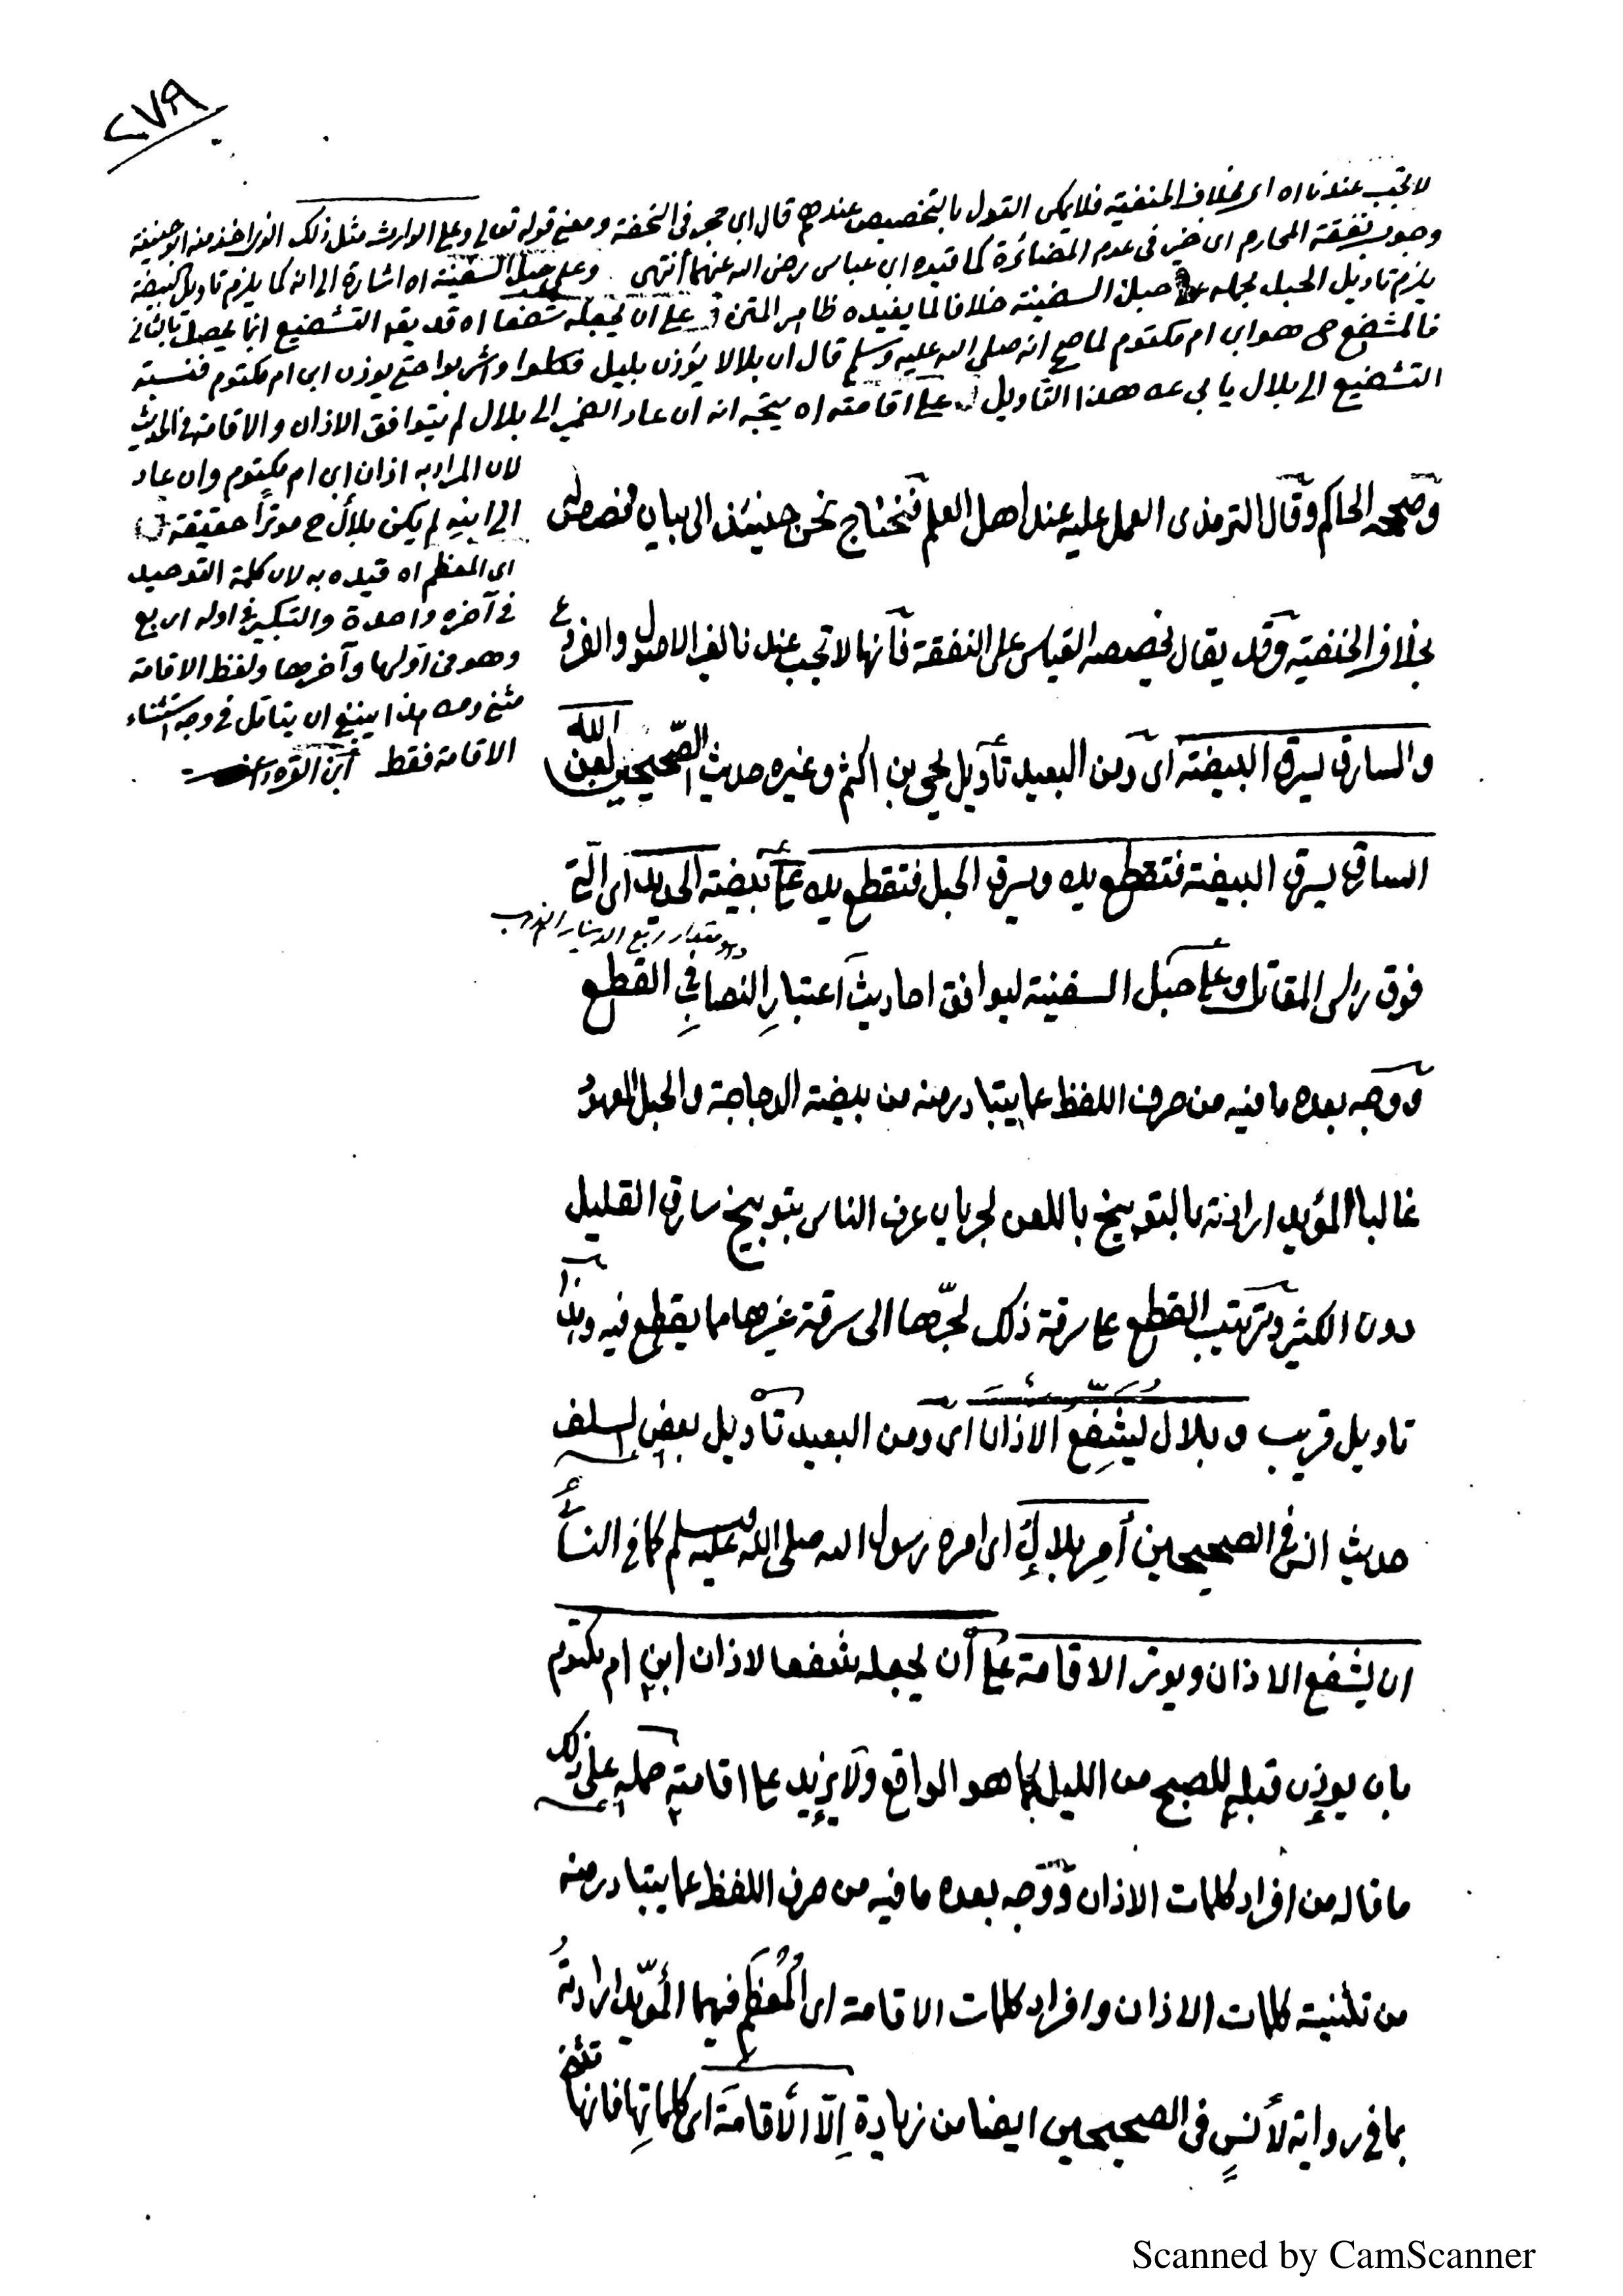 ٢٧٩
لا تجب عندنا اه اى بخلاف الحنفية فلا يمكن القول بالتخصيص عندهم قال ابن حجر فى التحفة ومعنى قوله تعالى وعلى الوارث مثل ذلك الذى اخذ منه ابو حنيفة
وجوب نفقة المحارم اى فى عدم المضائرة كما قيده ابن عباس رضى الله عنهما انتهى وعلى حبل السفينة اه اشارة الى انه كما يلزم تاويل البيضة
يلزم تاويل الحبل بحمله على حبل السفينة خلافا لما يفيده ظاهر المتن على ان يجعله شفعا اه قد يقع التشفيع انما يحصل بالثانى
فالمشفع ح هو ابن ام مكتوم لما صح انه صلى الله عليه وسلم قال ان بلالا يؤذن بليل فكلوا واشربوا حتى يوذن ابن ام مكتوم فنسبة
التشفيع الى بلال يابى عن هذا التاويل على اقامته اه يتجه انه ان عاد الضمير الى بلال لم يتوافق الاذان والاقامة فى الحديث
لان المراد به اذان ابن ام مكتوم وان عاد
الى ابنه لم يكن بلال ح موترا حقيقة
اى المعظم اه قيده به لان كلمة التوحيد
فى آخره واحدة والتكبير فى اوله اربع
وهو فى اولها وآخرها ولفظ الاقامة
مثنى ومن هذا ينبغى ان يتامل فى وجه استثناء
الاقامة فقط ابن القره داغى
وصححه الحاكم وقال الترمذى العمل عليه عند اهل العلم فنحتاج نحن حينئذ الى بيان مخصص
بخلاف الحنفية وقد يقال يخصصه القياس على النفقة فانها لا تجب عندنا لغير الاصول والفروع
والسارق يسرق البيضة اى ومن البعيد تأويل يحيى بن اكثم وغيره حديث الصحيحين لعن الله
السارق يسرق البيضة فتقطع يده ويسرق الحبل فتقطع يده على بيضة الحديد اى التى
وهو مقدار ربع الدينار الذهب
فوق رأس المقاتل وعلى حبل السفينة ليوافق احاديث اعتبار النصاب فى القطع
ووجه بعده ما فيه من صرف اللفظ عما يتبادر منه من بيضة الدجاجة والحبل المعهود
غالبا المؤيد ارادته بالتوبيخ باللعن لجريان عرف الناس بتوبيخ سارق القليل
دون الكثير وترتيب القطع على سرقة ذلك لجرّها الى سرقة غيرها مما يقطع فيه وهذا
تاويل قريب و بلال ليشفع الاذان اى ومن البعيد تأويل بعض السلف
حديث انس فى الصحيحين أُمِر بلال اى امره رسول الله صلى الله عليه وسلم كما فى النسائى
ان يشفع الاذان ويوتر الاقامة على أن يجعله شفعا لاذان ابن ام مكتوم
بان يوذن قبله للصبح من الليل كما هو الواقع ولا يزيد على اقامته حمله على ذلك
ما قاله من افراد كلمات الاذان ووجه بعده ما فيه من صرف اللفظ عما يتبادر منه
من تثنية كلمات الاذان وافراد كلمات الاقامة اى المُعظم فيهما المؤيّد ارادتُه
بما فى رواية لأنسٍ فى الصحيحين ايضا من زيادة إلّا الأقامَة اى كلماتِها فانها تثنى
Scanned by CamScanner